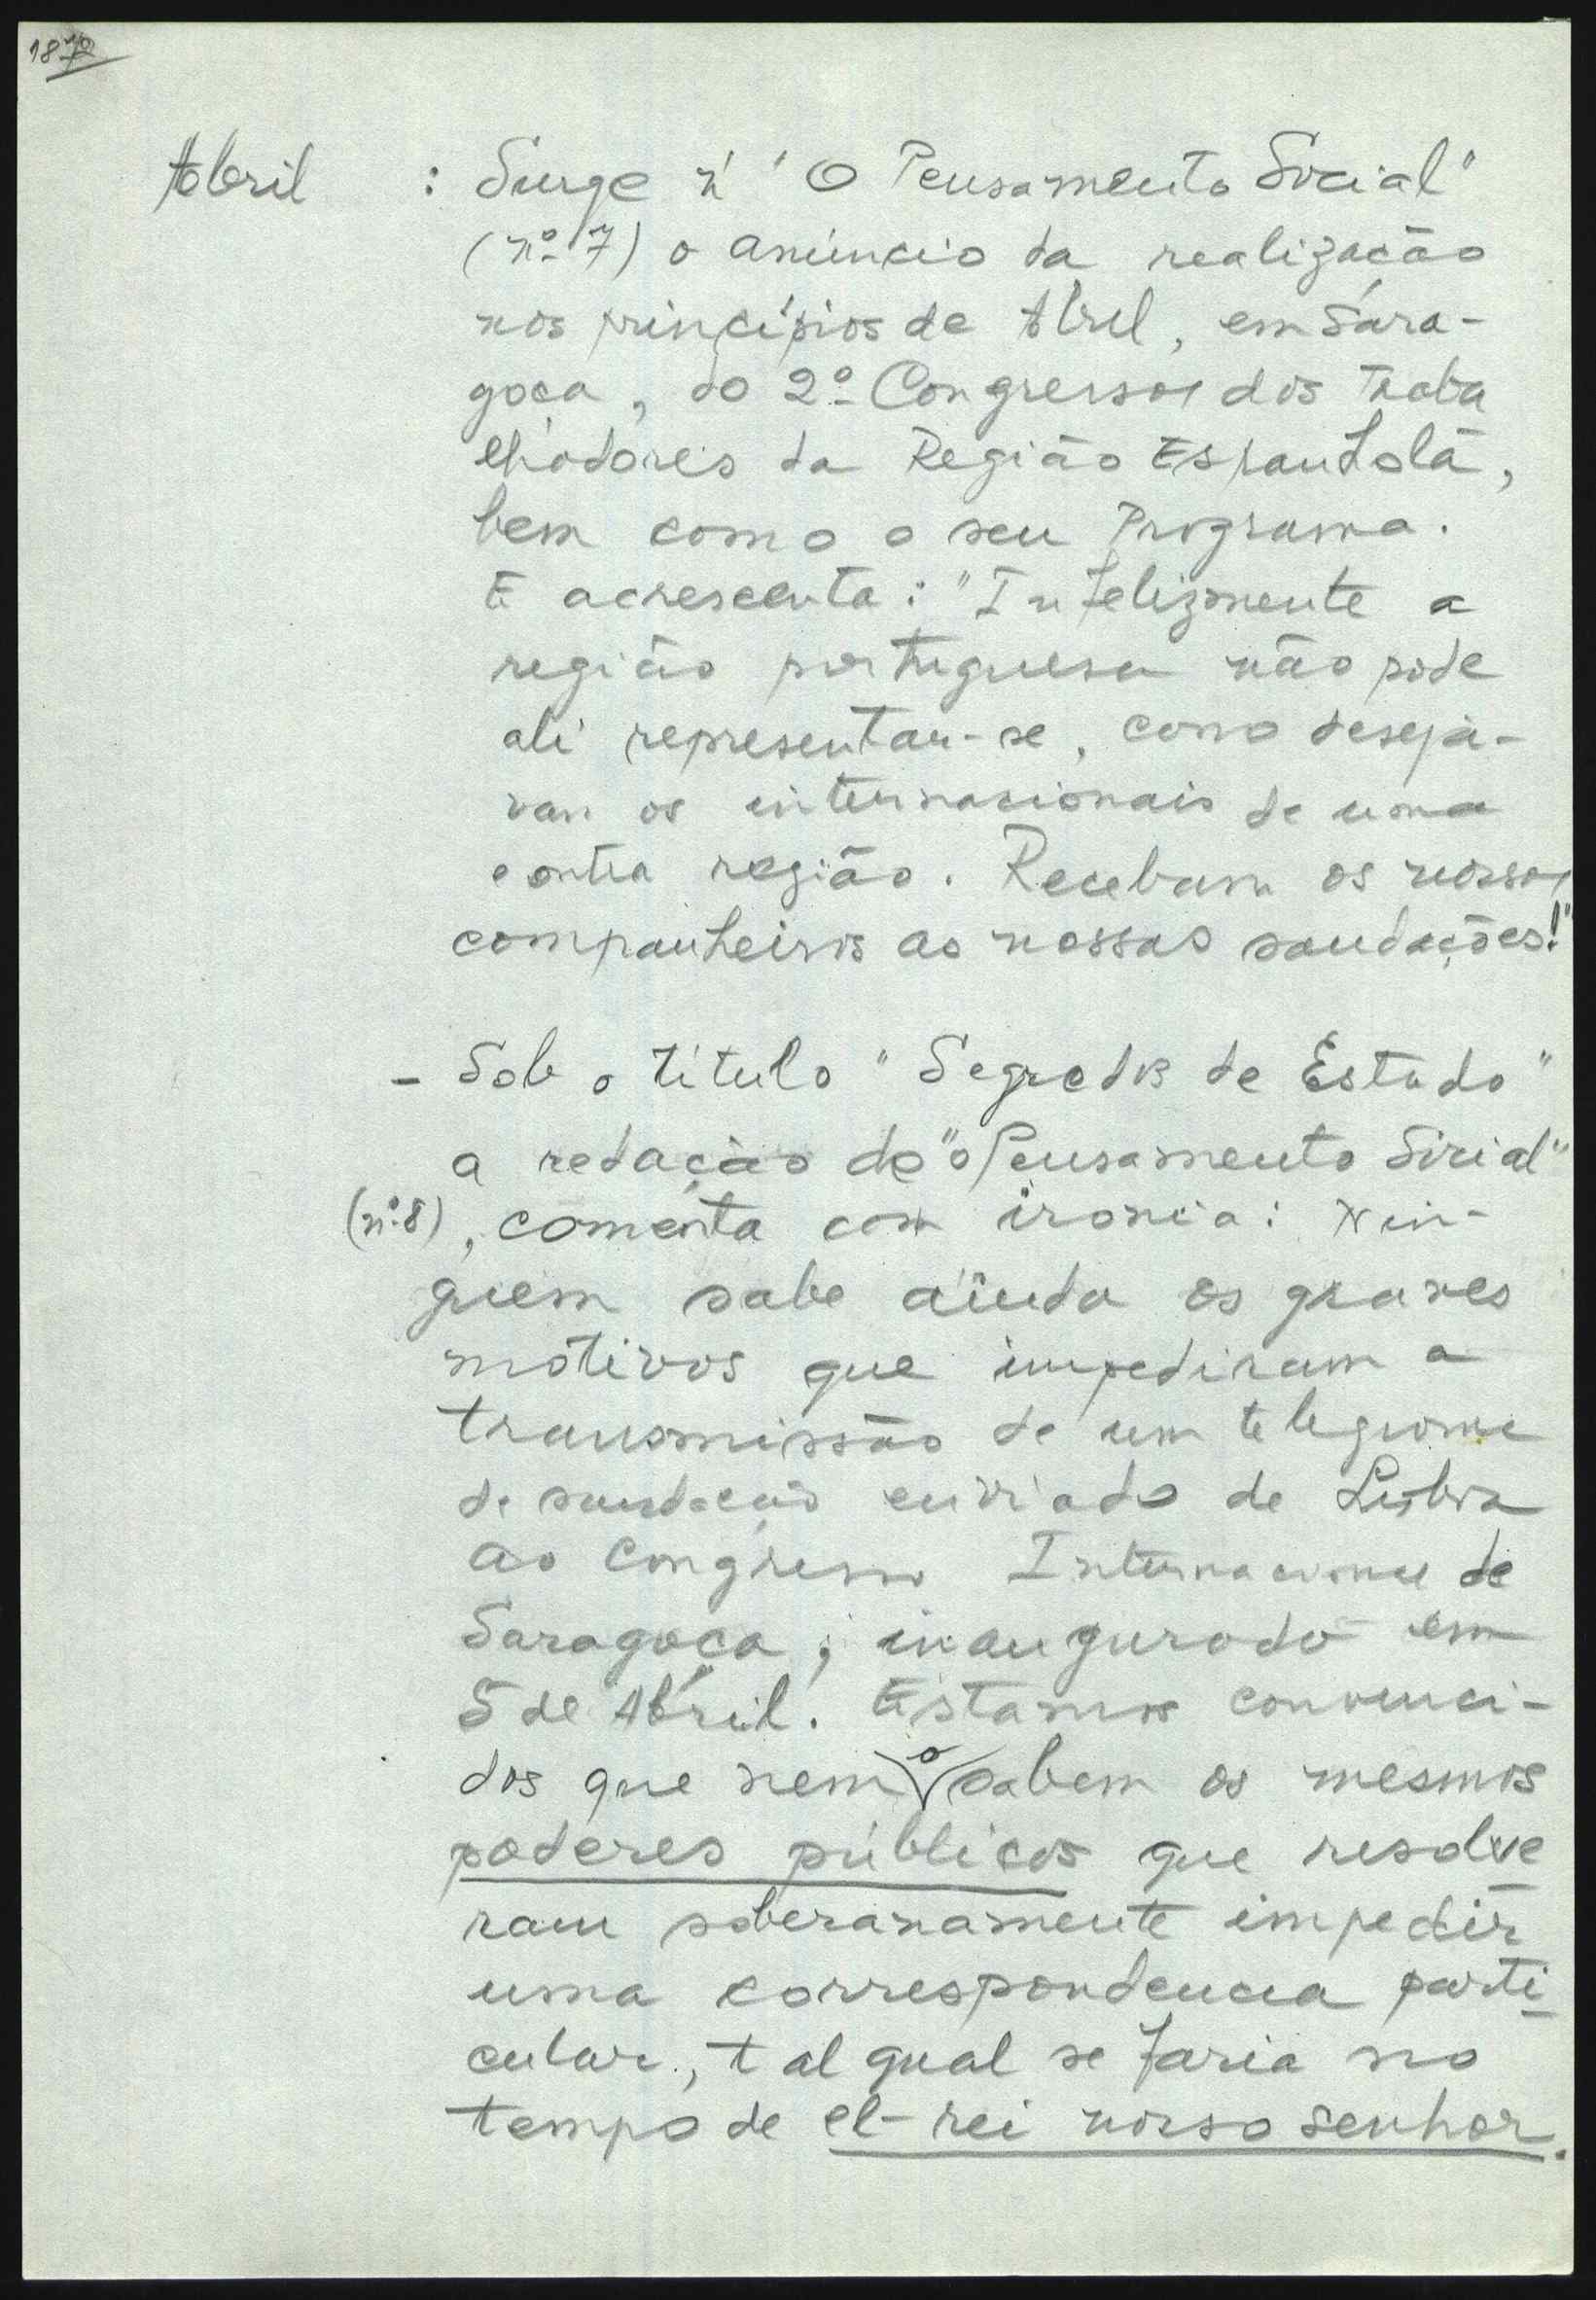 1872
Abril : Surge n' "O Pensamento Social"
(nº 7) o anúncio da realização
nos princípios de Abril, em Sara-
goça, do 2º Congresso dos traba
lhadores da Região Espanhola,
bem como o seu Programa.
E acrescenta: "Infelizmente a
região portuguesa não pode
ali representar-se, como deseja-
vam os internacionais de uma
e outra região. Recebam os nossos
companheiros as nossas saudações!"
- Sob o título "Segredos de Estado"
a redação de "o Pensamento Social"
(nº 8), comenta com ironia: Nin-
guem sabe ainda os graves
motivos que impediram a
transmissão de um telegrama
de saudação enviado de Lisboa
ao Congresso Internacional de
Saragoça, inaugurado em
5 de Abril. Estamos convenci-
dos que nem o sabem os mesmos
poderes públicos que resolve
ram soberanamente impedir
uma correspondencia parti-
cular, tal qual se faria no
tempo de el-rei nosso senhor.